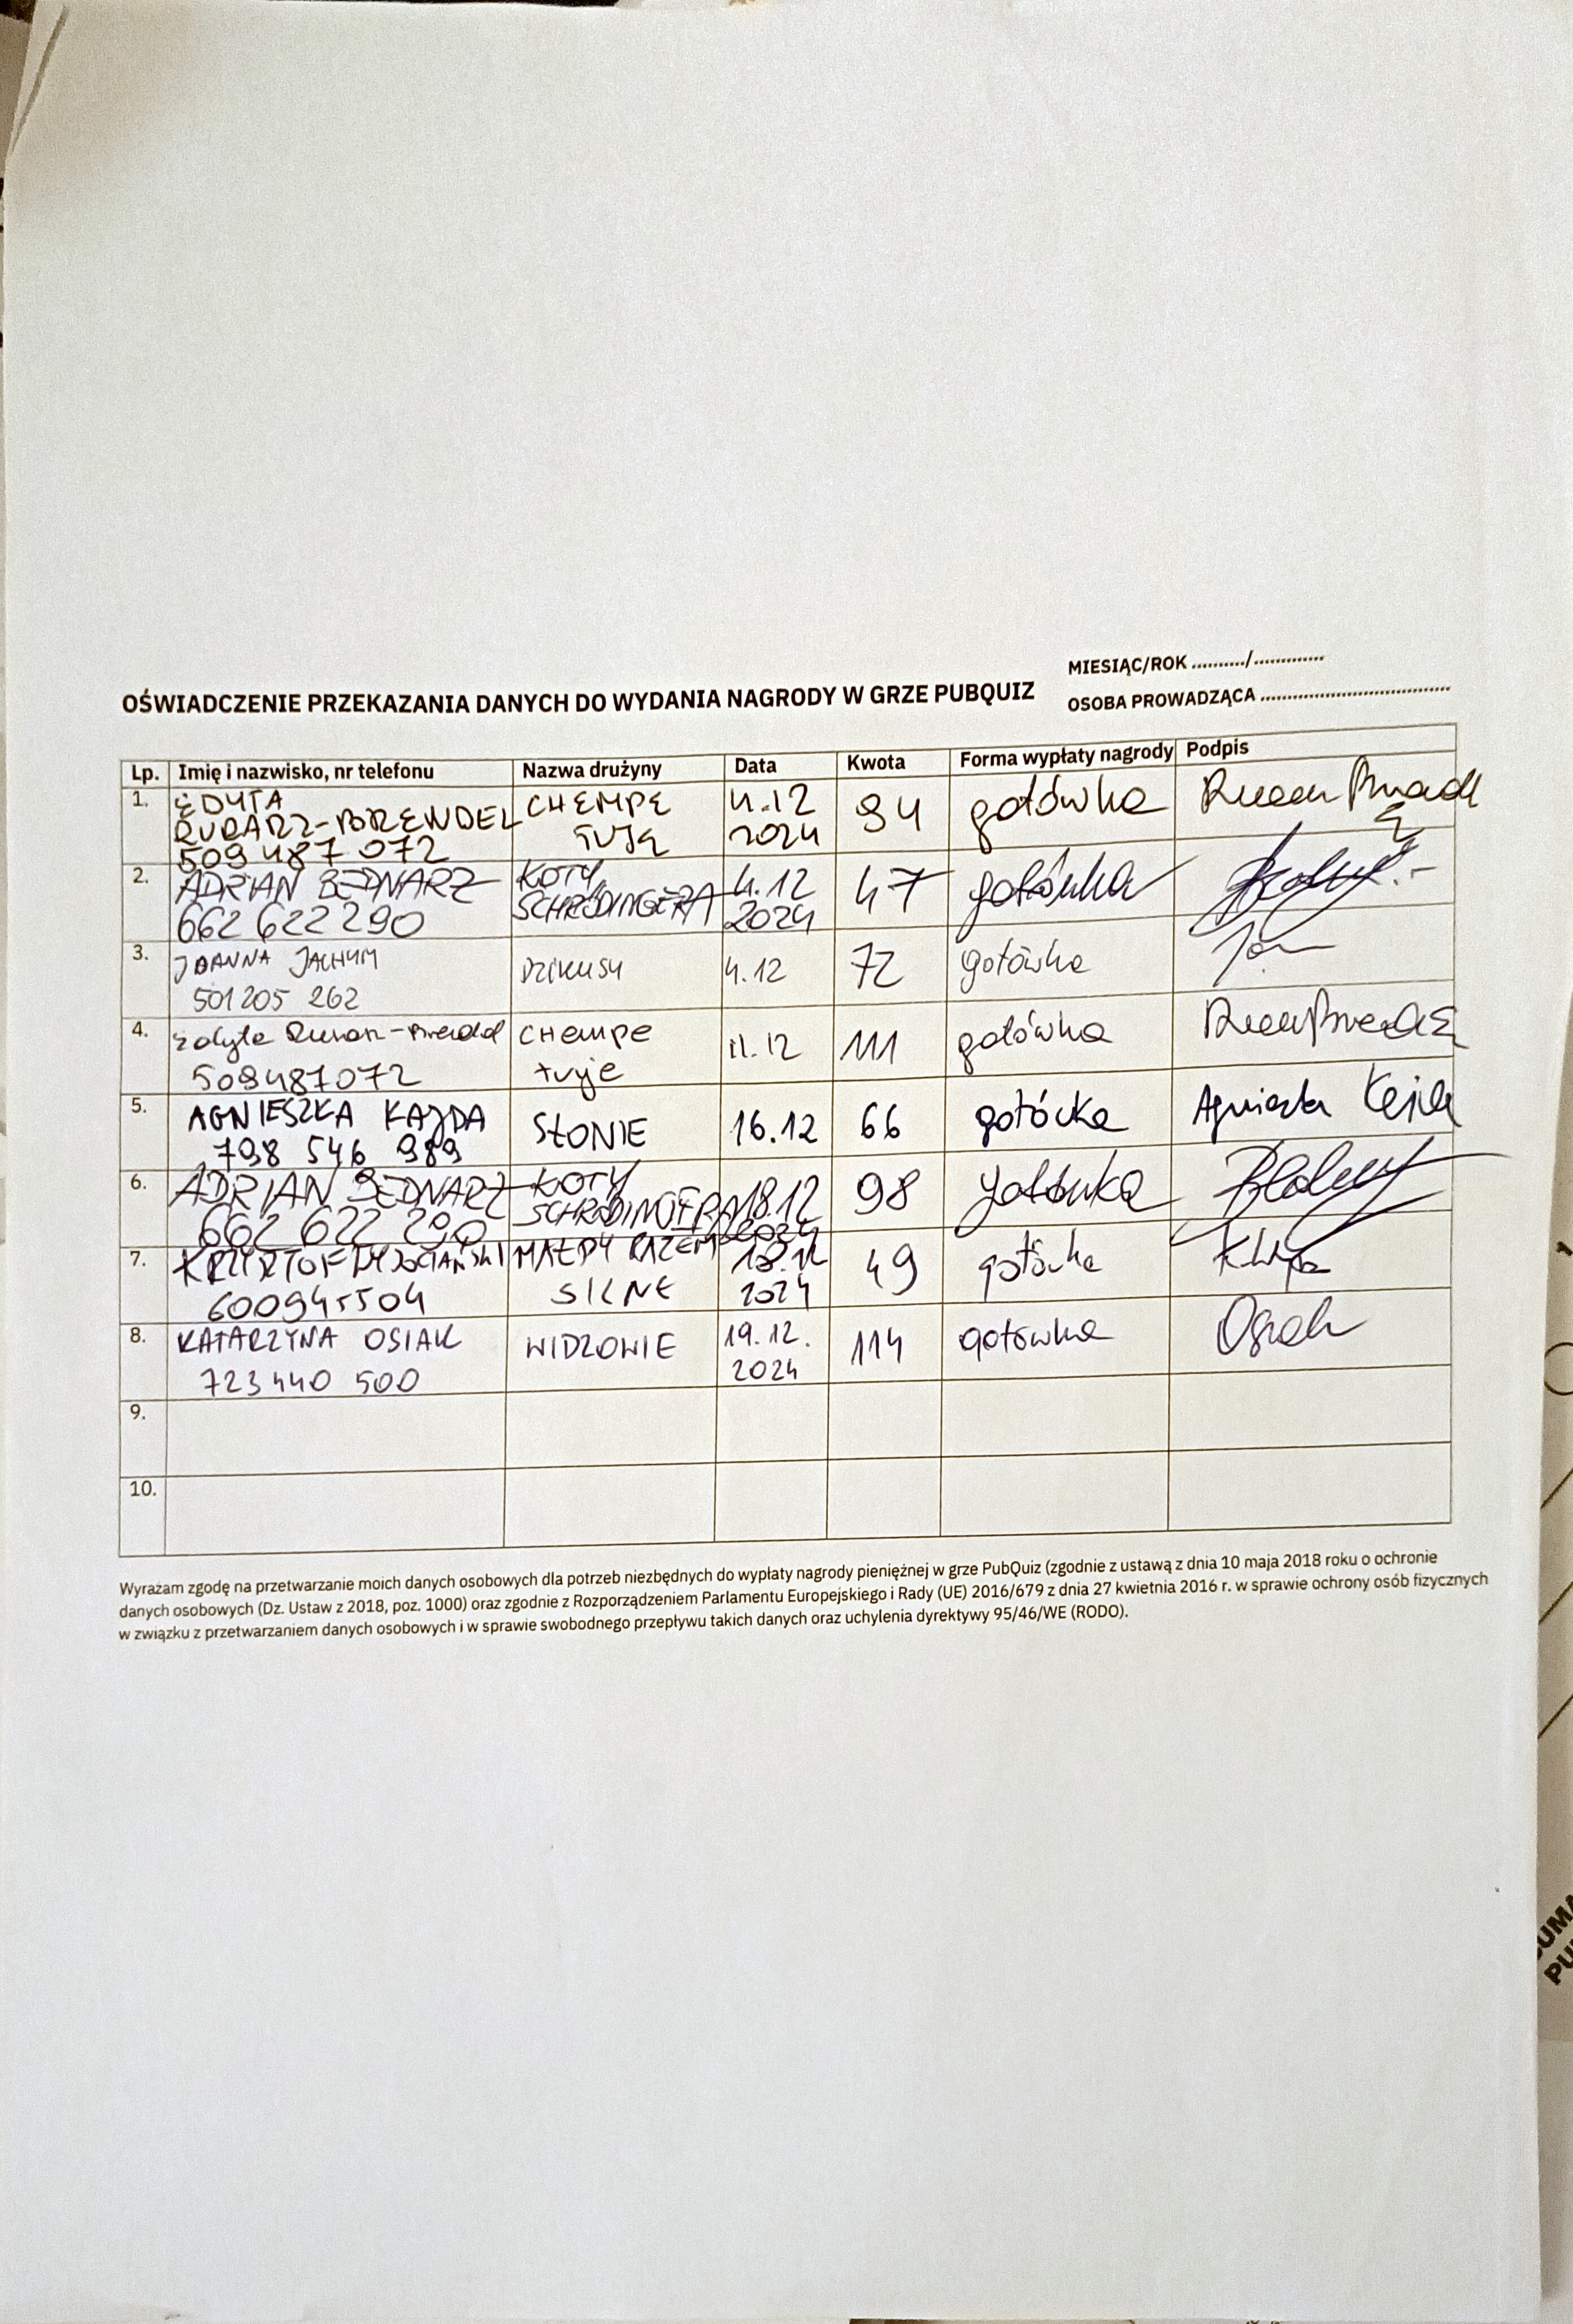 MIESIĄC/ROK ........../.............
OŚWIADCZENIE PRZEKAZANIA DANYCH DO WYDANIA NAGRODY W GRZE PUBQUIZ
OSOBA PROWADZĄCA ...................................
Lp. Imię i nazwisko, nr telefonu Nazwa drużyny Data Kwota Forma wypłaty nagrody Podpis
1. EDYTA RURARZ-BRENDEL CHEMPE 4.12 94 gotówka
509 487 072 TUJĘ 2024
2. ADRIAN BEDNARZ KOTY 4.12 47 gotówka
662 622 290 SCHRÖDINGERA 2024
3. JOANNA JACHYM DZIKUSY 4.12 72 gotówka
501 205 262
4. Edyta CHempe 11.12 111 gotówka
509487072 tuje
5. AGNIESZKA KAJDA SŁONIE 16.12 66 gotócka Agnieszka
798 546 989
6. ADRIAN BEDNARZ KOTY 18.12 98 gotówka
662 622 290 SCHRÖDINGERA 2024
7. MAŁPY RAZEM 18.12 49 gotówka
600945504 SILNE 2024
8. KATARZYNA OSIAK WIDZOWIE 19.12. 114 gotówka Osiak
723 440 500 2024
9.
10.
Wyrażam zgodę na przetwarzanie moich danych osobowych dla potrzeb niezbędnych do wypłaty nagrody pieniężnej w grze PubQuiz (zgodnie z ustawą z dnia 10 maja 2018 roku o ochronie
danych osobowych (Dz. Ustaw z 2018, poz. 1000) oraz zgodnie z Rozporządzeniem Parlamentu Europejskiego i Rady (UE) 2016/679 z dnia 27 kwietnia 2016 r. w sprawie ochrony osób fizycznych
w związku z przetwarzaniem danych osobowych i w sprawie swobodnego przepływu takich danych oraz uchylenia dyrektywy 95/46/WE (RODO).